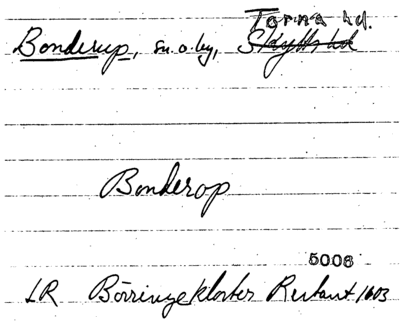 Torna hd.
Bonderup, sn. o. by, Skytts hd
Bonderop
5006
LR Börringekloster Restant 1603